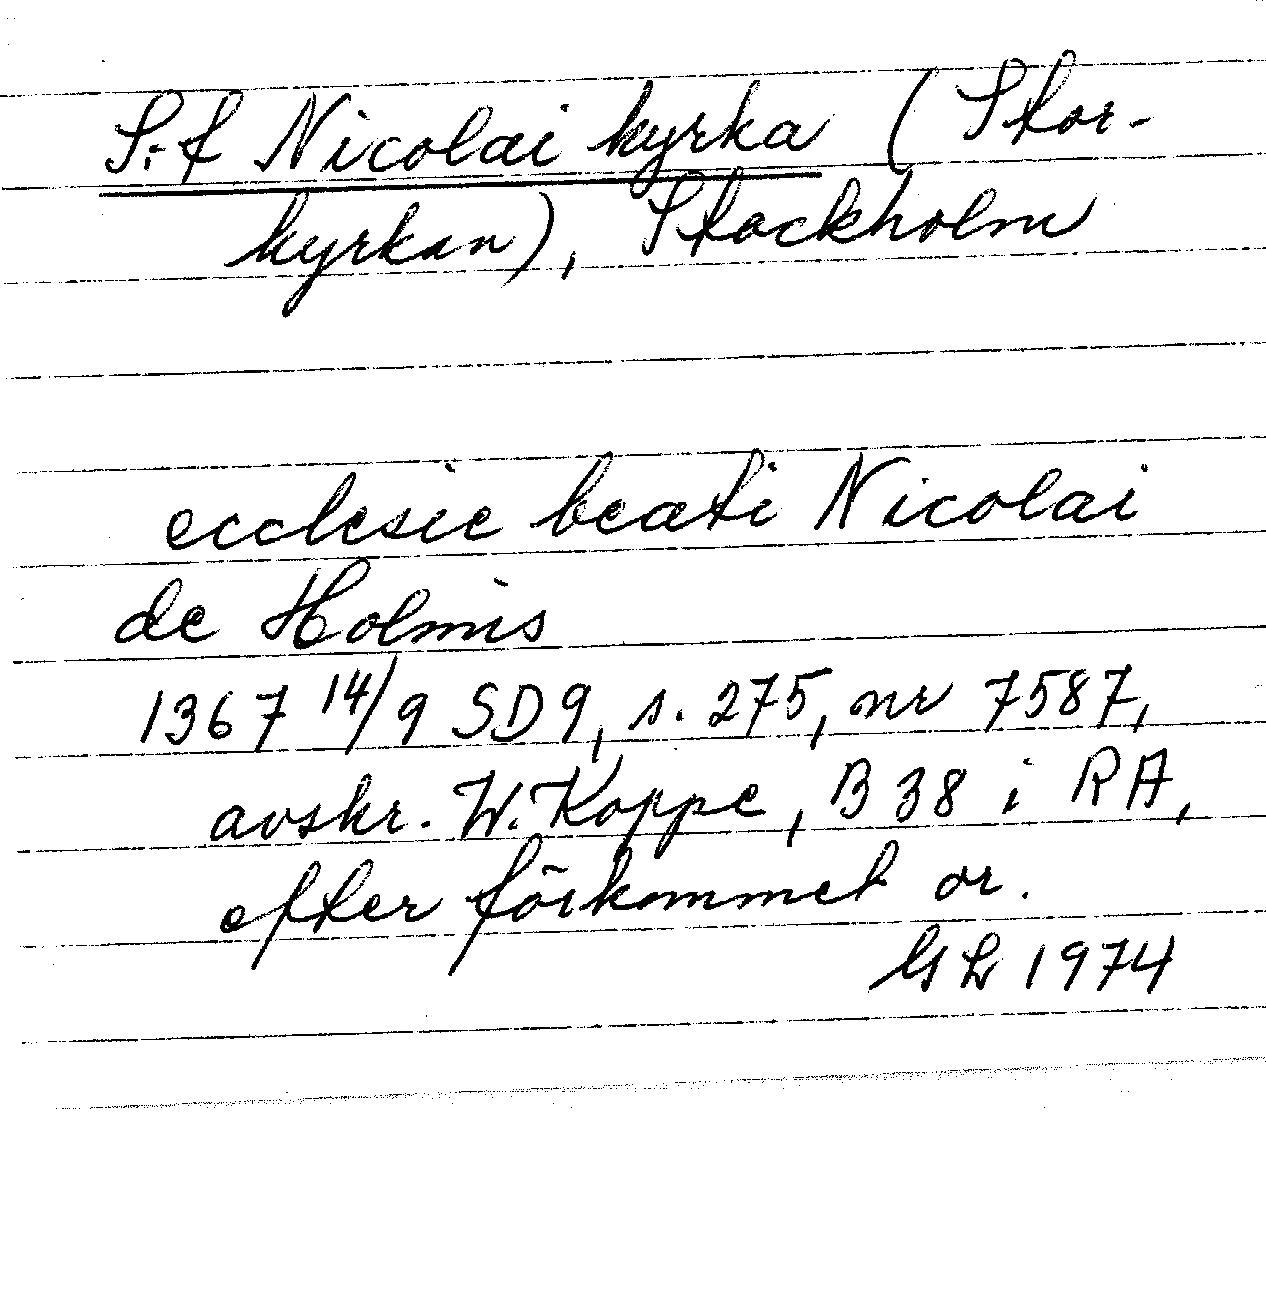 S:t Nicolai kyrka (Stor-
kyrkan), Stockholm
ecclesie beati Nicolai
de Holmis
1367 14/9 SD9, s. 275, nr 7587,
avskr. W. Koppe, B 38 i RA,
efter förkommet or.
GL 1974